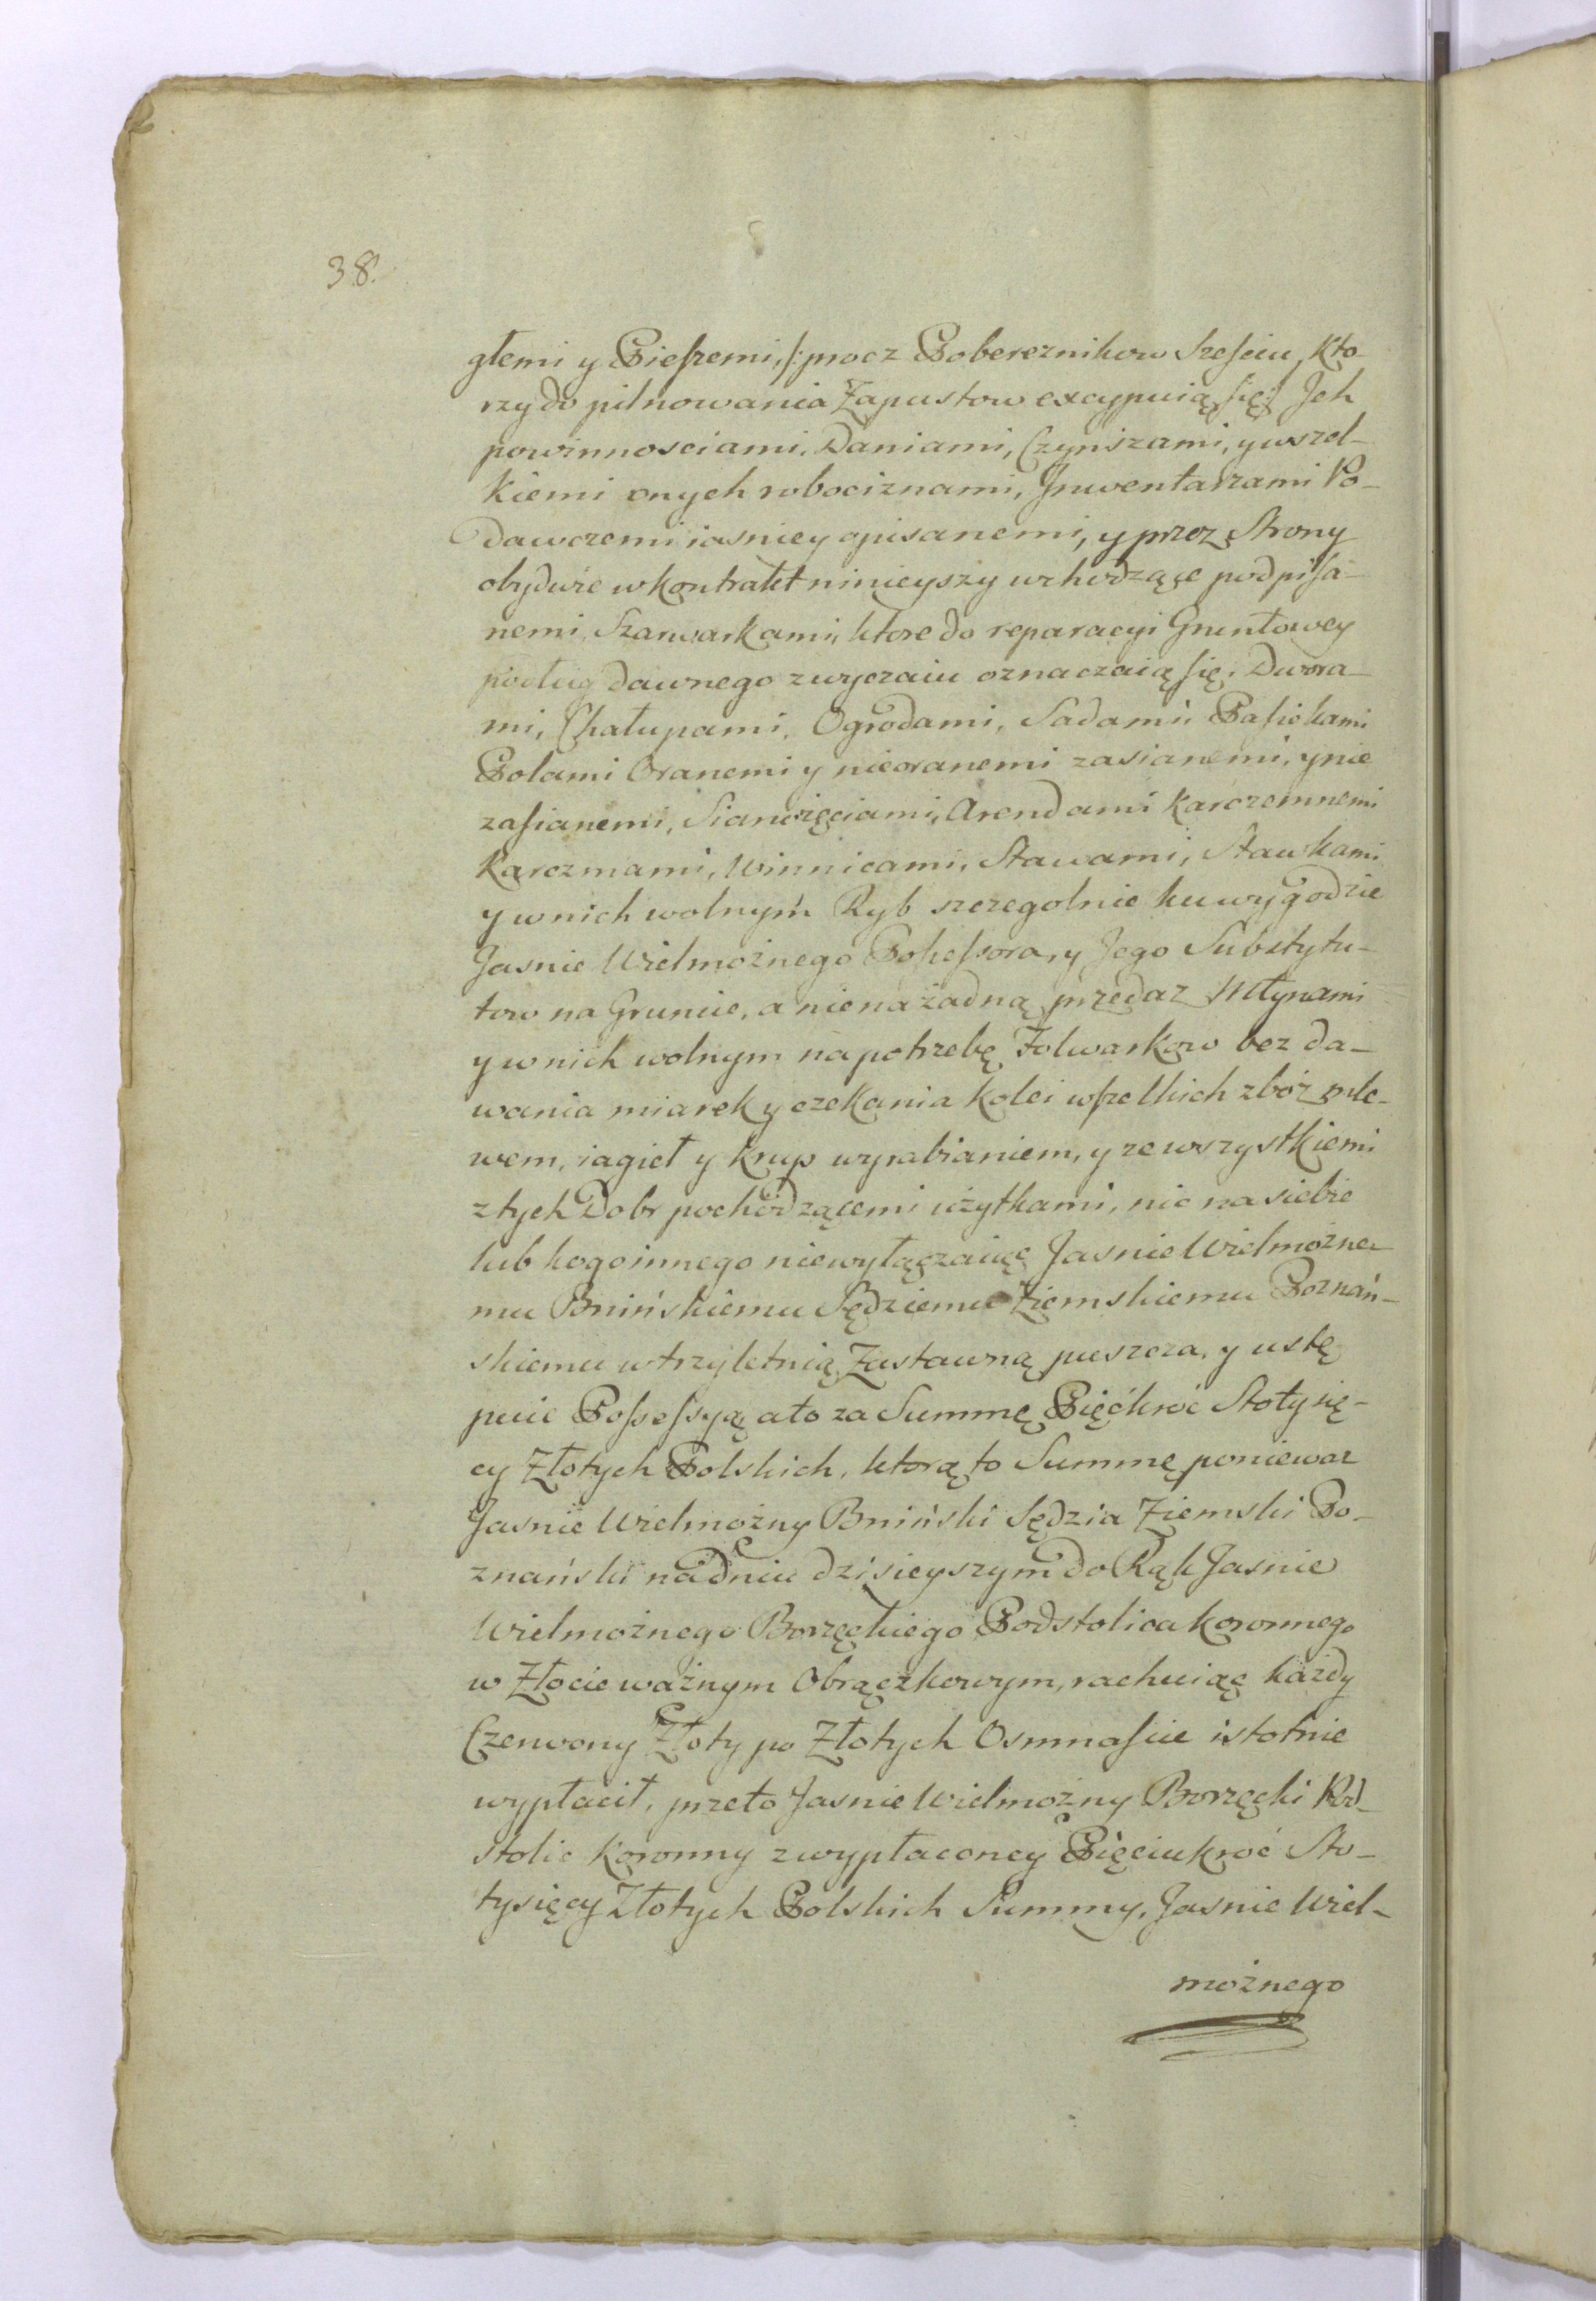 38.
głemi y Pieszemi, /: procz Pobereznikow Szesciu, kto-
rzy do pilnowania Zapustow excypuią się :/ Jch
powinnosciami, Daniami, Czynszami, y wszel-
kiemi onych robociznami, Jnwentarzami Po-
dawczemi iasniey opisanemi, y przez Strony
obydwie w kontrakt ninieyszy wchodzące podpisa-
nemi, Szarwarkami, ktore do reparacyi Gruntowey
podług dawnego zwyczaiu oznaczaią się, Dwora-
mi, Chałupami, Ogrodami, Sadami Pasiekami
Polami Oranemi y nieoranemi zasianemi, y nie
zasianemi, Sianożęciami, Arendami karczemnemi
Karczmami, Winnicami, Stawami, Stawkami
y w nich wolnym Ryb szczegolnie ku wygodzie
Jasnie Wielmożnego Possessora, y Jego Substytu-
tow na Gruncie, a nie na żadną przedaz Młynami
y w nich wolnym na potrzebę Folwarkow bez da-
wania miarek y czekania kolei wszelkich zbóż mle-
wem, iagieł y krup wyrabianiem, y ze wszystkiemi
z tych Dobr pochodzącemi użytkami, nic na siebie
lub kogo innego niewyłączaiąc Jasnie Wielmożne-
mu Bnińskiemu Sędziemu Ziemskiemu Poznań-
skiemu w trzyletnią Zastawną puszcza, y ustę
puie Possessyą a to za Summę Pięćkroć Stotysię-
cy Złotych Polskich, ktorą to Summę poniewaz
Jasnie Wielmożny Bniński Sędzia Ziemski Po-
znański na dniu dzisieyszym do Rąk Jasnie
Wielmożnego Borzęckiego Podstolica Koronnego
w Złocie ważnym Obrączkowym, rachuiąc każdy
Czerwony Złoty po Złotych Osmnascie istotnie
wypłacił, przeto Jasnie Wielmożny Borzęcki Pod-
stolic Koronny z wypłaconey Pięciukroć Sto-
tysięcy Złotych Polskich Summy, Jasnie Wiel-
możnego